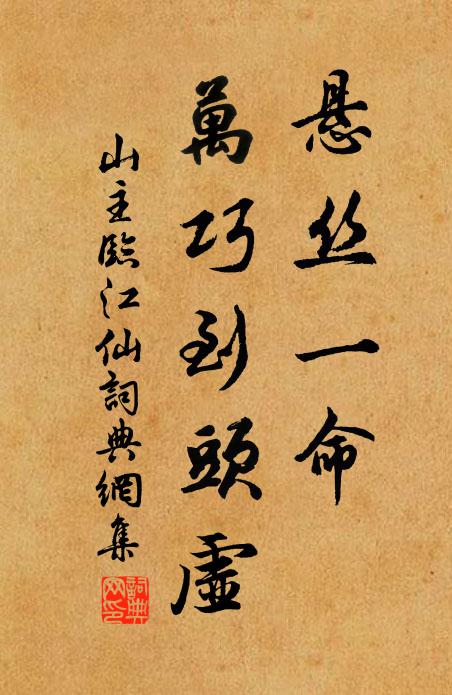 悬丝一命
萬巧到頭虛
山主臨江仙詞典網集
詞典
网印